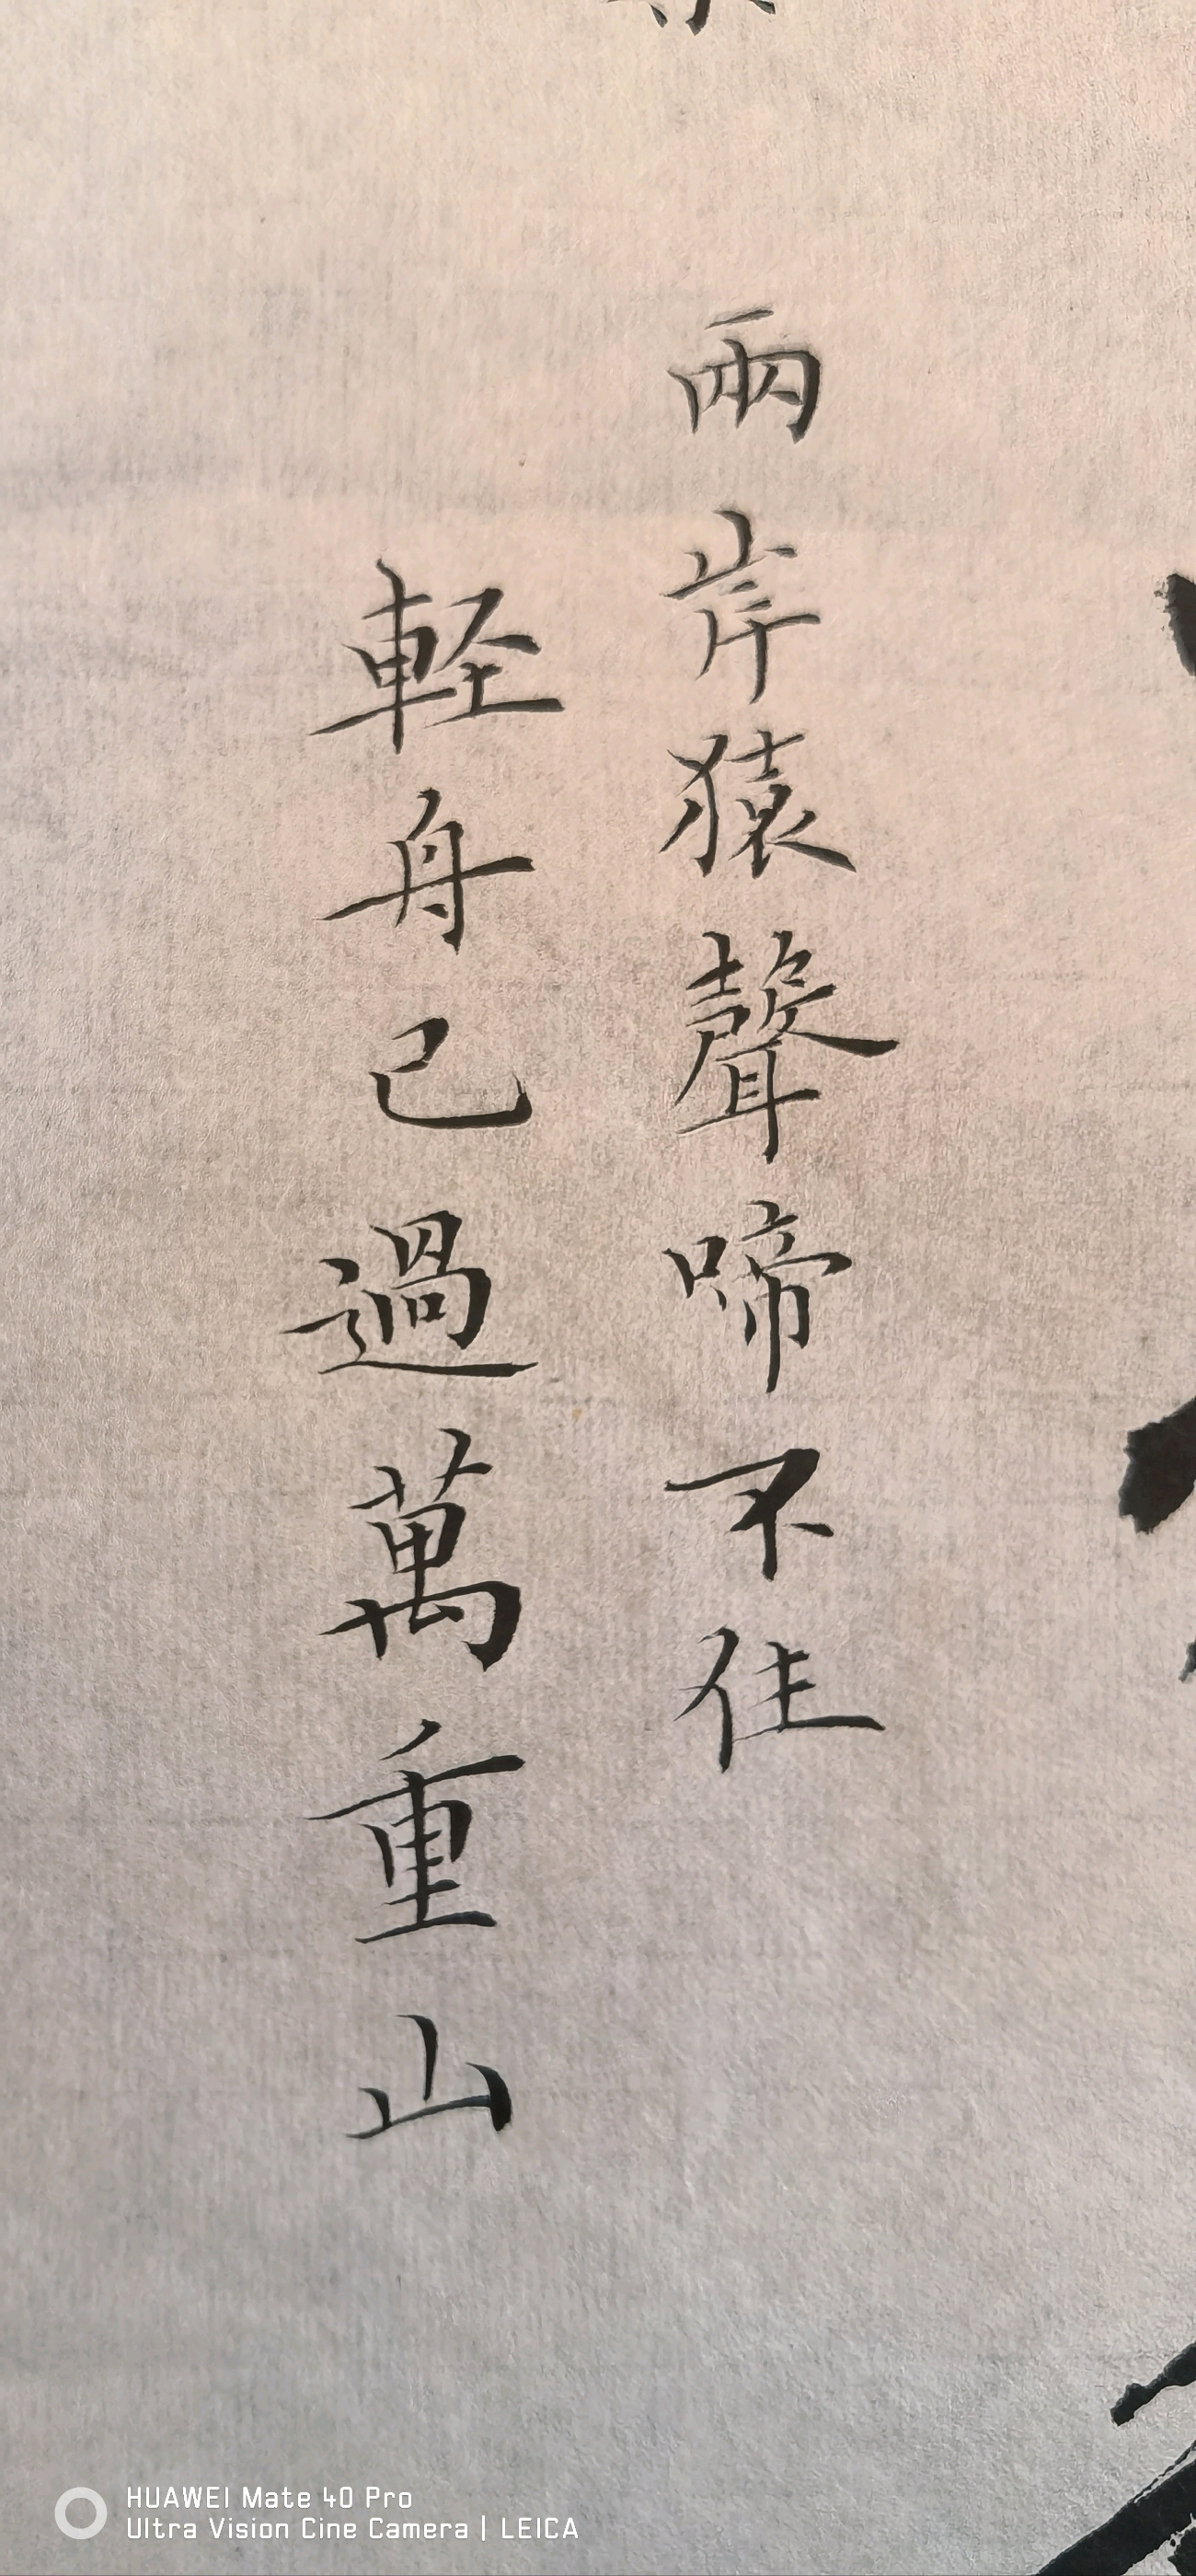 兩岸猿聲啼不住
軽舟已過萬重山
HUAWEI Mate 40 Pro
Ultra Vision Cine Camera | LEICA